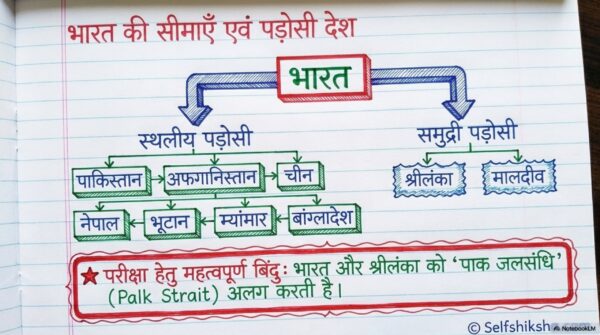 भारत की सीमाएँ एवं पड़ोसी देश
भारत
स्थलीय पड़ोसी
समुद्री पड़ोसी
पाकिस्तान
अफगानिस्तान
चीन
श्रीलंका
मालदीव
नेपाल
भूटान
म्यांमार
बांग्लादेश
★ परीक्षा हेतु महत्वपूर्ण बिंदु: भारत और श्रीलंका को 'पाक जलसंधि'
(Palk Strait) अलग करती है।
© Selfshiksh
NotebookLM